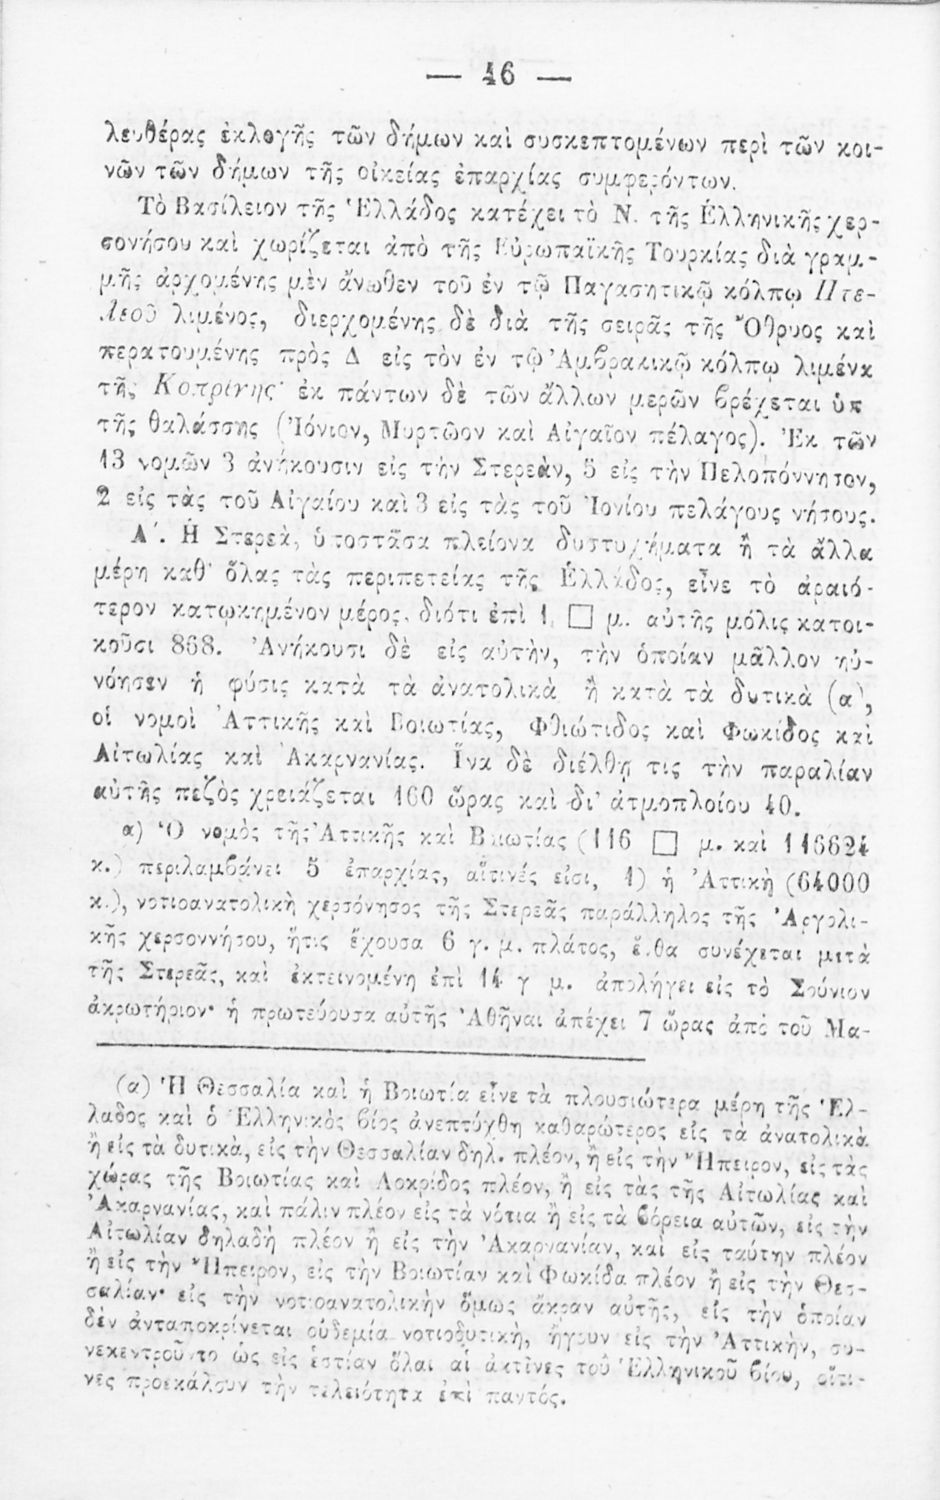 — 46 —
λευθέρας ἐκλογῆς τῶν δήμων καὶ συσκεπτομένων περὶ τῶν κοι-
νῶν τῶν δήμων τῆς οἰκείας ἐπαρχίας συμφερόντων.
Τὸ Βασίλειον τῆς Ἑλλάδος κατέχει τὸ Ν. τῆς Ἑλληνικῆς χερ-
σονήσου καὶ χωρίζεται ἀπὸ τῆς Εὐρωπαϊκῆς Τουρκίας διὰ γραμ-
μῆς ἀρχομένης μὲν ἄνωθεν τοῦ ἐν τῷ Παγασητικῷ κόλπῳ Πτε-
λεοῦ λιμένος, διερχομένης δὲ διὰ τῆς σειρᾶς τῆς Ὄθρυος καὶ
περατουμένης πρὸς Δ εἰς τὸν ἐν τῷ Ἀμβρακικῷ κόλπῳ λιμένα
τῆς Κοπρίνης· ἐκ πάντων δὲ τῶν ἄλλων μερῶν βρέχεται ὑπ
τῆς θαλάσσης (Ἰόνιον, Μυρτῶον καὶ Αἰγαῖον πέλαγος). Ἐκ τῶν
13 νομῶν 3 ἀνήκουσιν εἰς τὴν Στερεὰν, 5 εἰς τὴν Πελοπόννησον,
2 εἰς τὰς τοῦ Αἰγαίου καὶ 3 εἰς τὰς τοῦ Ἰονίου πελάγους νήσους.
Α΄. Ἡ Στερεὰ, ὑποστᾶσα πλείονα δυστυχήματα ἢ τὰ ἄλλα
μέρη καθ' ὅλας τὰς περιπετείας τῆς Ἑλλάδος, εἶνε τὸ ἀραιό-
τερον κατῳκημένον μέρος, διότι ἐπὶ 1 □ μ. αὐτῆς μόλις κατοι-
κοῦσι 868. Ἀνήκουσι δὲ εἰς αὐτὴν, τὴν ὁποίαν μᾶλλον ηὐ-
νόησεν ἡ φύσις κατὰ τὰ ἀνατολικὰ ἢ κατὰ τὰ δυτικὰ (α),
οἱ νομοὶ Ἀττικῆς καὶ Βοιωτίας, Φθιώτιδος καὶ Φωκίδος καὶ
Αἰτωλίας καὶ Ἀκαρνανίας. Ἵνα δὲ διέλθῃ τις τὴν παραλίαν
αὐτῆς πεζὸς χρειάζεται 160 ὥρας καὶ δι' ἀτμοπλοίου 40.
α) Ὁ νομὸς τῆς Ἀττικῆς καὶ Βοιωτίας (116 □ μ. καὶ 116624
κ.) περιλαμβάνει 5 ἐπαρχίας, αἵτινές εἰσι, 1) ἡ Ἀττικὴ (64000
κ.), νοτιοανατολικὴ χερσόνησος τῆς Στερεᾶς παράλληλος τῆς Ἀργολι-
κῆς χερσοννήσου, ἥτις ἔχουσα 6 γ. μ. πλάτος, ἔνθα συνέχεται μετὰ
τῆς Στερεᾶς, καὶ ἐκτεινομένη ἐπὶ 14 γ μ. ἀπολήγει εἰς τὸ Σούνιον
ἀκρωτήριον· ἡ πρωτεύουσα αὐτῆς Ἀθῆναι ἀπέχει 7 ὥρας ἀπὸ τοῦ Μα-
(α) Ἡ Θεσσαλία καὶ ἡ Βοιωτία εἶνε τὰ πλουσιώτερα μέρη τῆς Ἑλ-
λαδος καὶ ὁ Ἑλληνικὸς βίος ἀνεπτύχθη καθαρώτερος εἰς τὰ ἀνατολικὰ
ἢ εἰς τὰ δυτικὰ, εἰς τὴν Θεσσαλίαν δηλ. πλέον, ἢ εἰς τὴν Ἤπειρον, εἰς τὰς
χώρας τῆς Βοιωτίας καὶ Λοκρίδος πλέον, ἢ εἰς τὰς τῆς Αἰτωλίας καὶ
Ἀκαρνανίας, καὶ πάλιν πλέον εἰς τὰ νότια ἢ εἰς τὰ βόρεια αὐτῶν, εἰς τὴν
Αἰτωλίαν δηλαδὴ πλέον ἢ εἰς τὴν Ἀκαρνανίαν, καὶ εἰς ταύτην πλέον
ἢ εἰς τὴν Ἤπειρον, εἰς τὴν Βοιωτίαν καὶ Φωκίδα πλέον ἢ εἰς τὴν Θεσ-
σαλίαν· εἰς τὴν νοτιοανατολικὴν ὅμως ἄκραν αὐτῆς, εἰς τὴν ὁποίαν
δὲν ἀνταποκρίνεται οὐδεμία νοτιοδυτικὴ, ἤγουν εἰς τὴν Ἀττικὴν, συ-
νεκεντροῦντο ὡς εἰς ἑστίαν ὅλαι αἱ ἀκτῖνες τοῦ Ἑλληνικοῦ βίου, οἵτι-
νες προεκάλουν τὴν τελειότητα ἐπὶ παντός.